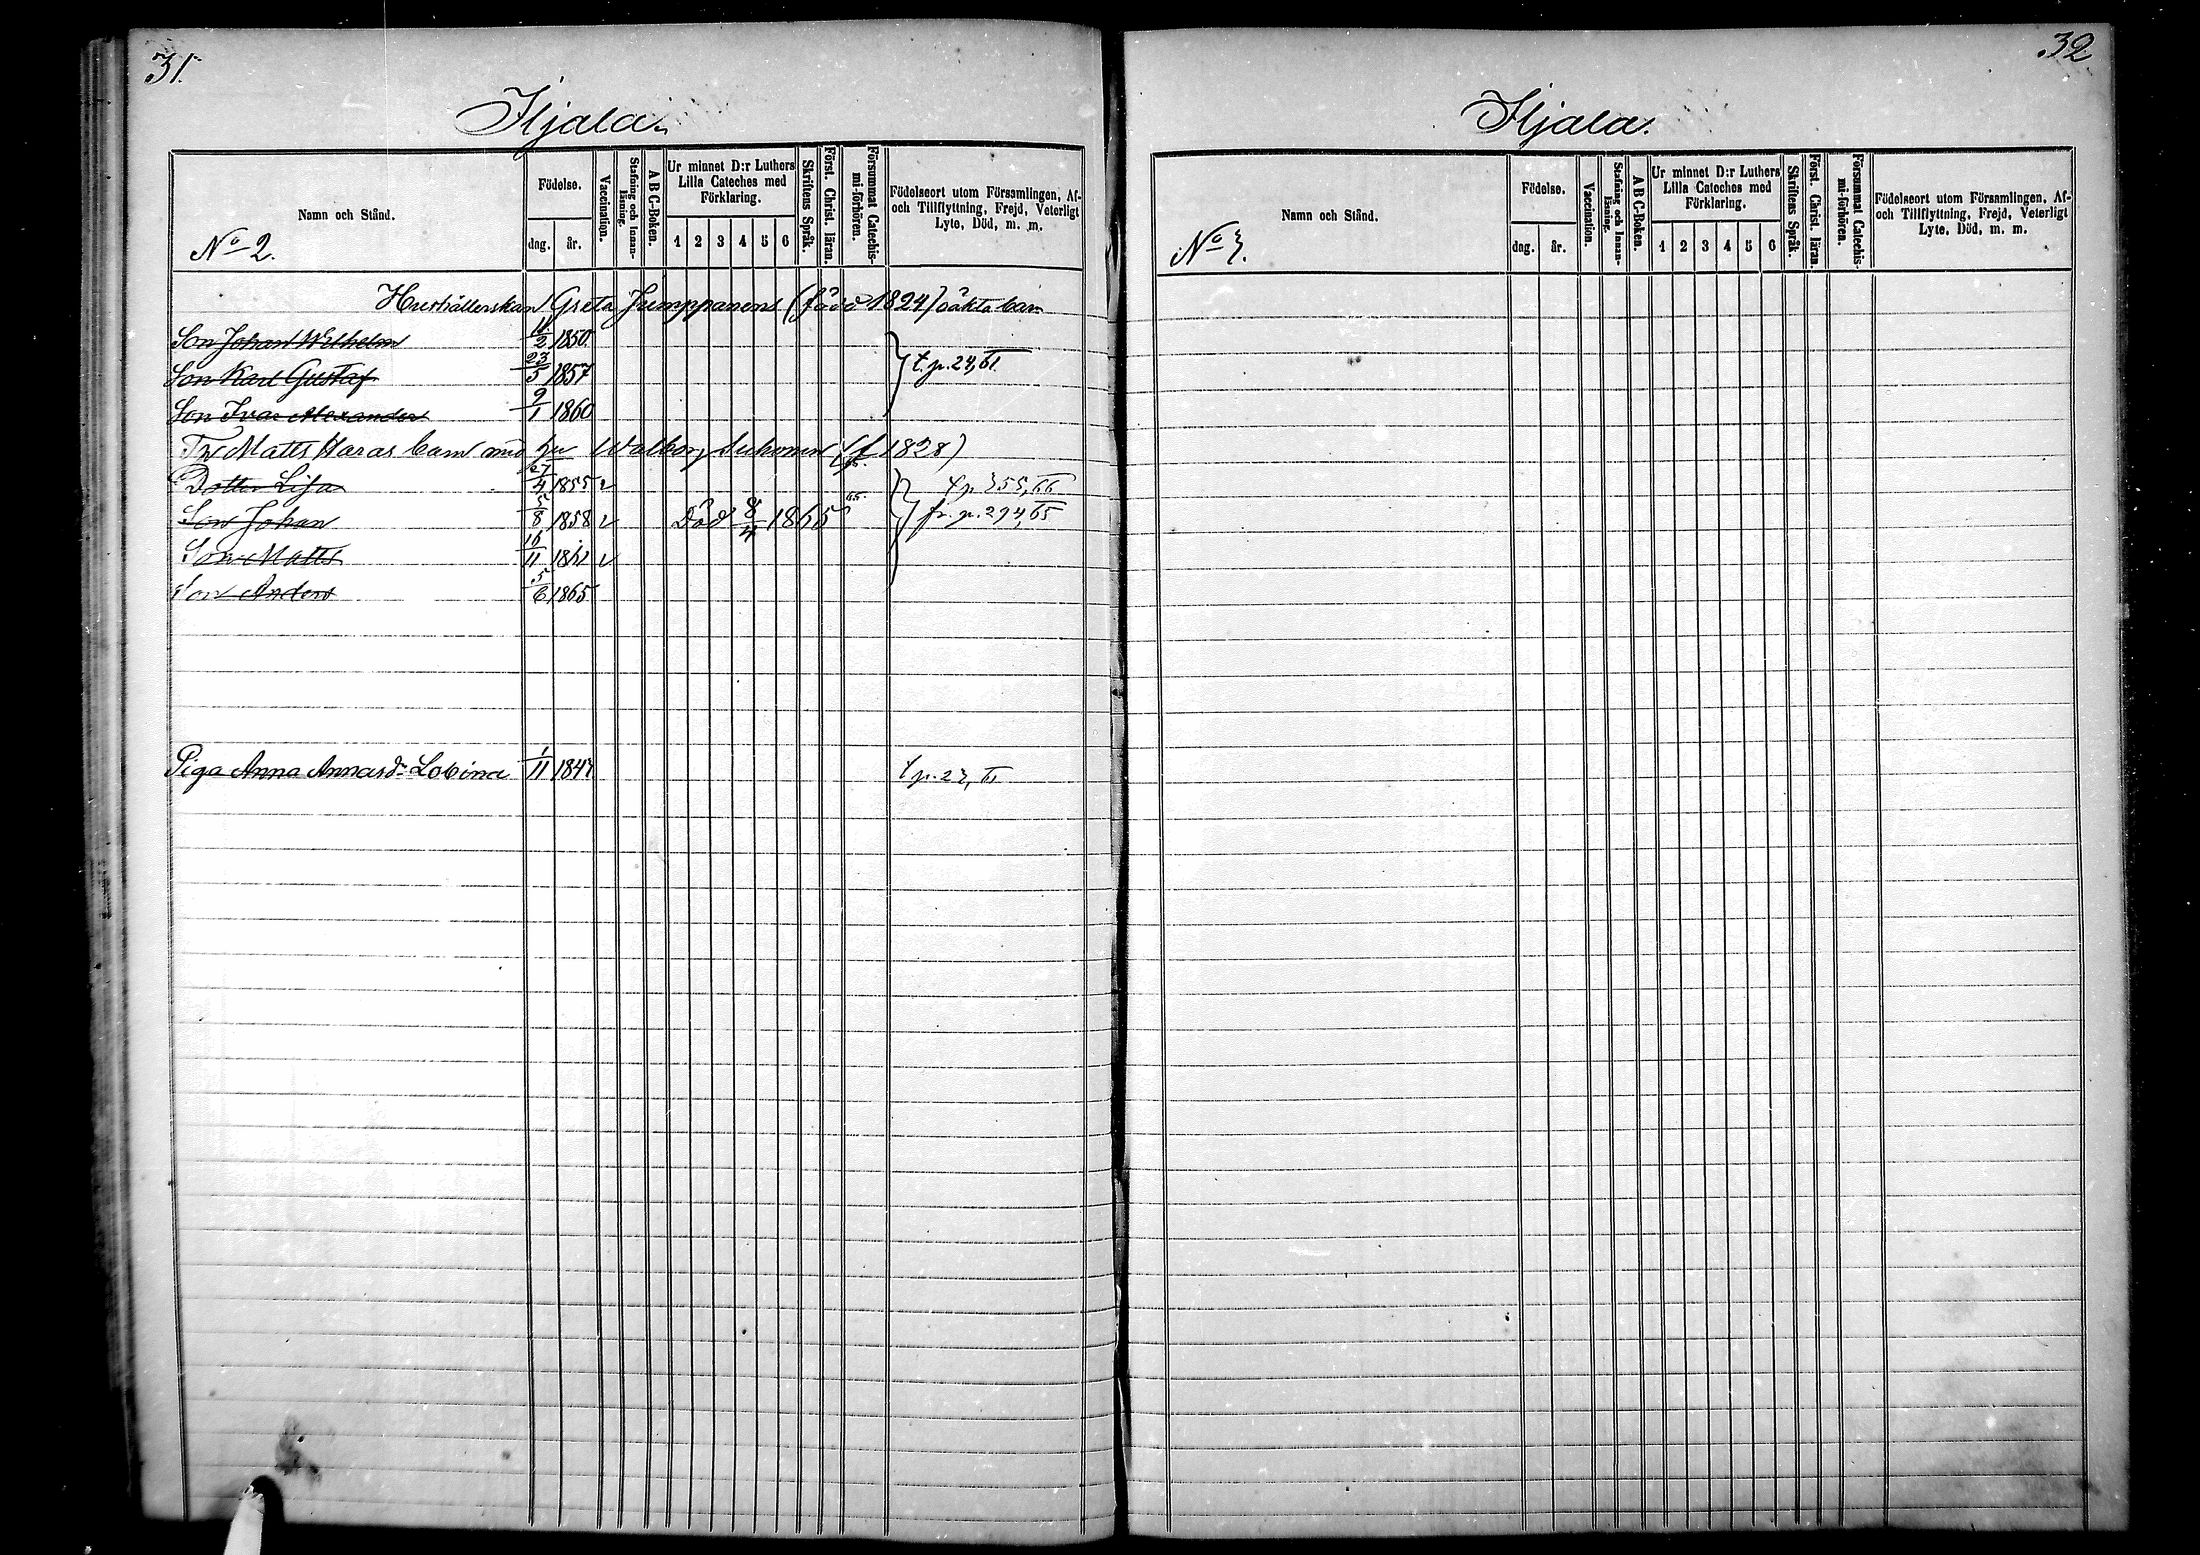 31.
Iljala.
Namn och Stånd.
No 2.
Födelse.
dag.
år.
Vaccination.
Stafning och Innan-läsning.
A B C-Boken.
Ur minnet D:r Luthers
Lilla Cateches med
Förklaring.
1 2 3 4 5 6
Skriftens Språk.
Först. Christ. läran.
Försummat Catechis-mi-förhören.
Födelseort utom Församlingen, Af-
och Tillflyttning, Frejd, Veterligt
Lyte, Död, m. m.
Hushållerskan Greta Jumppanens (född 1824) oäkta barn
Son Johan Wilhelm 11/2 1850
Son Karl Gustaf 23/5 1857 t. p. 24, 61
Son Ivar Alexander 9/1 1860
Matts Haras barn med Walborg (f 1828)
Dotter Lisa 27/4 1855 t p. 355, 66
Son Johan 5/8 1858 Död 8/4 1865 fr. p. 294, 65
Son Matts 16/11 1861
Son Anders 5/6 1865
Piga Anna Annasdr Lobina 1/11 1847 t p. 27, 61
32
Iljala.
Namn och Stånd.
No 3.
Födelse.
dag.
år.
Vaccination.
Stafning och Innan-läsning.
A B C-Boken.
Ur minnet D:r Luthers
Lilla Cateches med
Förklaring.
1 2 3 4 5 6
Skriftens Språk.
Först. Christ. läran.
Försummat Catechis-mi-förhören.
Födelseort utom Församlingen, Af-
och Tillflyttning, Frejd, Veterligt
Lyte, Död, m. m.